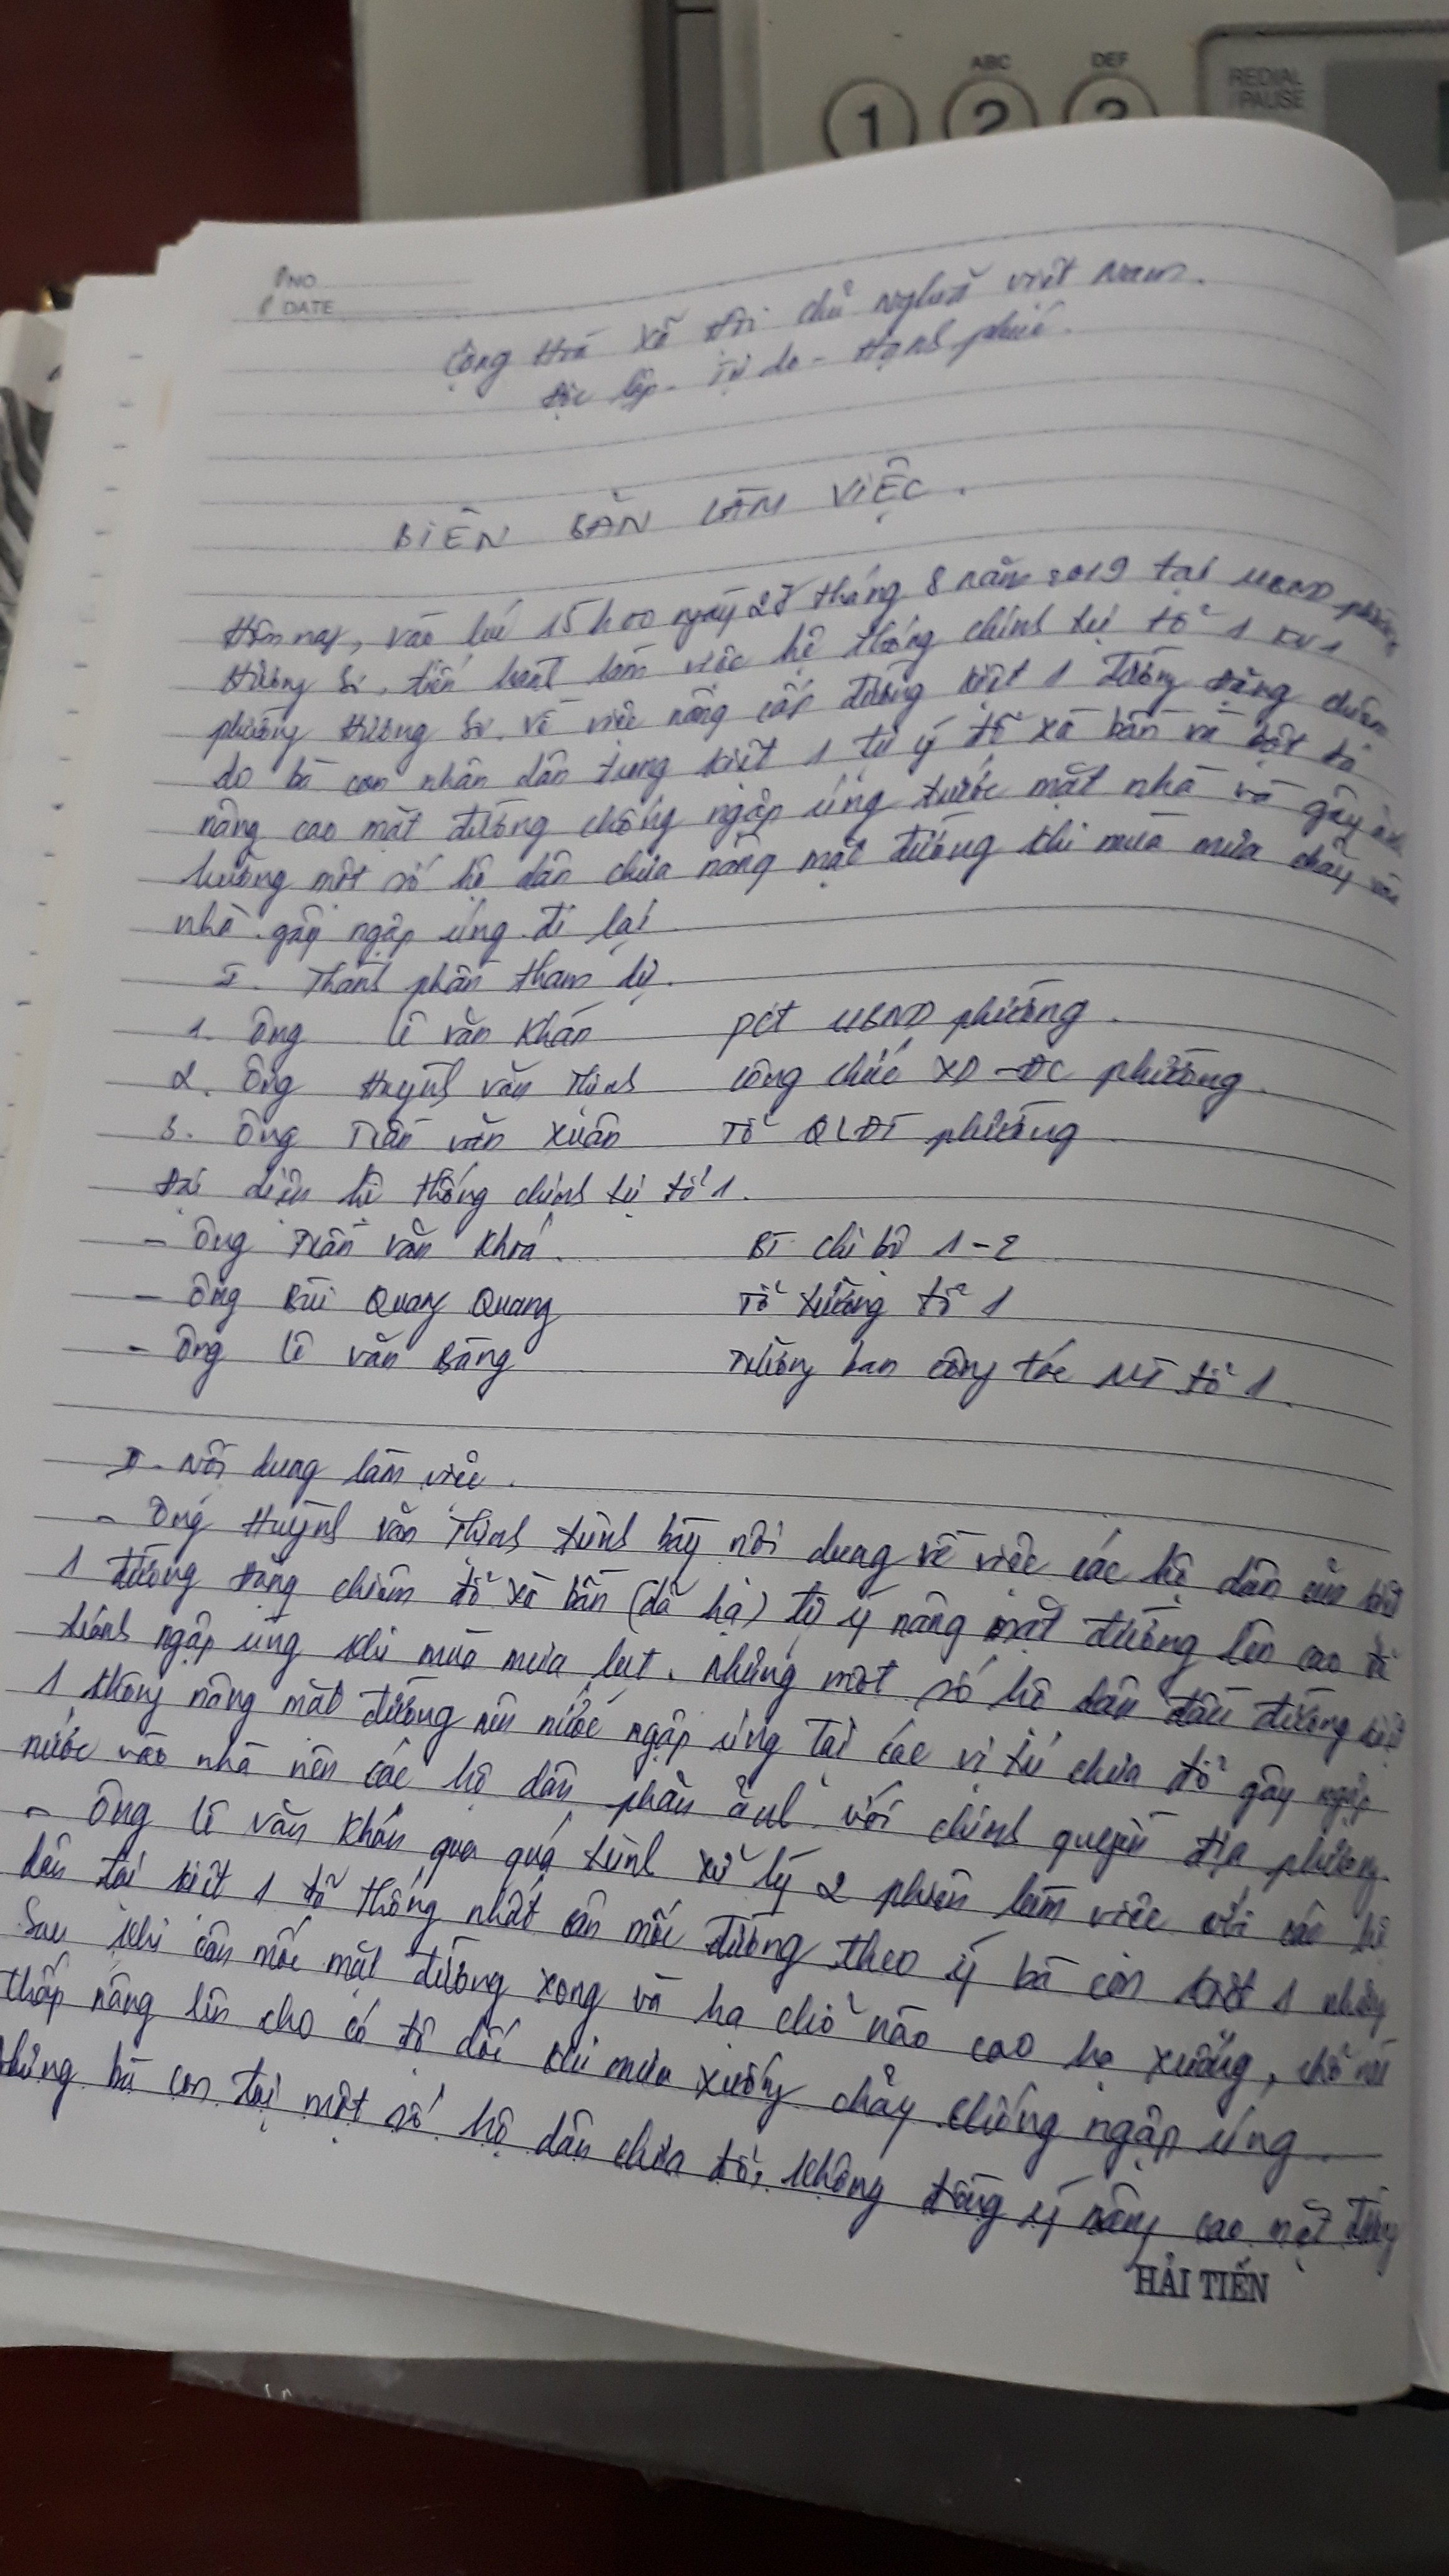 ABC
DEF
1
2
3
REDIAL
/PAUSE
NO
DATE
Cộng Hoà Xã Hội chủ Nghĩa Việt Nam.
Độc lập - Tự do - Hạnh phúc.
BIÊN BẢN LÀM VIỆC.
Hôm nay, vào lúc 15h00 ngày tháng 8 năm 2019 tại UBND phường
Hương Sơ, tiến hành làm việc hệ thống chính trị tổ 1 KV1
phường Hương Sơ. Về việc nâng cấp đường kiệt 1 đường Đặng Chiêm
do bà con nhân dân trong kiệt 1 tự ý đổ xà bần và bột đá
nâng cao mặt đường chống ngập úng trước mặt nhà và gây ảnh
hưởng một số hộ dân chưa nâng mặt đường khi mùa mưa chảy vào
nhà gây ngập úng đi lại
I. Thành phần tham dự.
1. Ông Lê Văn Khán PCT UBND phường.
2. Ông Huỳnh Văn Thịnh công chức XD - ĐC phường.
3. Ông Trần Văn Xuân Tổ QLĐT phường
Đại diện hệ thống chính trị tổ 1.
- Ông Trần Văn Khoá. BT chi bộ 1-2
- Ông Bùi Quang Quang Tổ trưởng tổ 1
- Ông Lê Văn Bằng Trưởng ban công tác MT tổ 1.
II. Nội dung làm việc.
- Ông Huỳnh Văn Thịnh trình bày nội dung về việc các hộ dân của kiệt
1 đường Đặng Chiêm đổ xà bần (đã hạ) tự ý nâng mặt đường lên cao để
tránh ngập úng khi mùa mưa lụt. Nhưng một số hộ dân đầu đường kiệt
1 không nâng mặt đường nên nước ngập úng tại các vị trí chưa đổ gây ngập
nước vào nhà nên các hộ dân phản ảnh với chính quyền địa phương.
- Ông Lê Văn Khán qua quá trình xử lý 2 phiên làm việc với các hộ
dân tại kiệt 1 đã thống nhất cân mốc đường theo ý bà con kiệt 1 nhưng
Sau khi cân mốc mặt đường xong và hạ chỗ nào cao hạ xuống, chỗ nào
thấp nâng lên cho có độ dốc khi mưa xuống chảy chống ngập úng
nhưng bà con tại một số hộ dân chưa đổ, không đồng ý nâng cao mặt đường
HẢI TIẾN